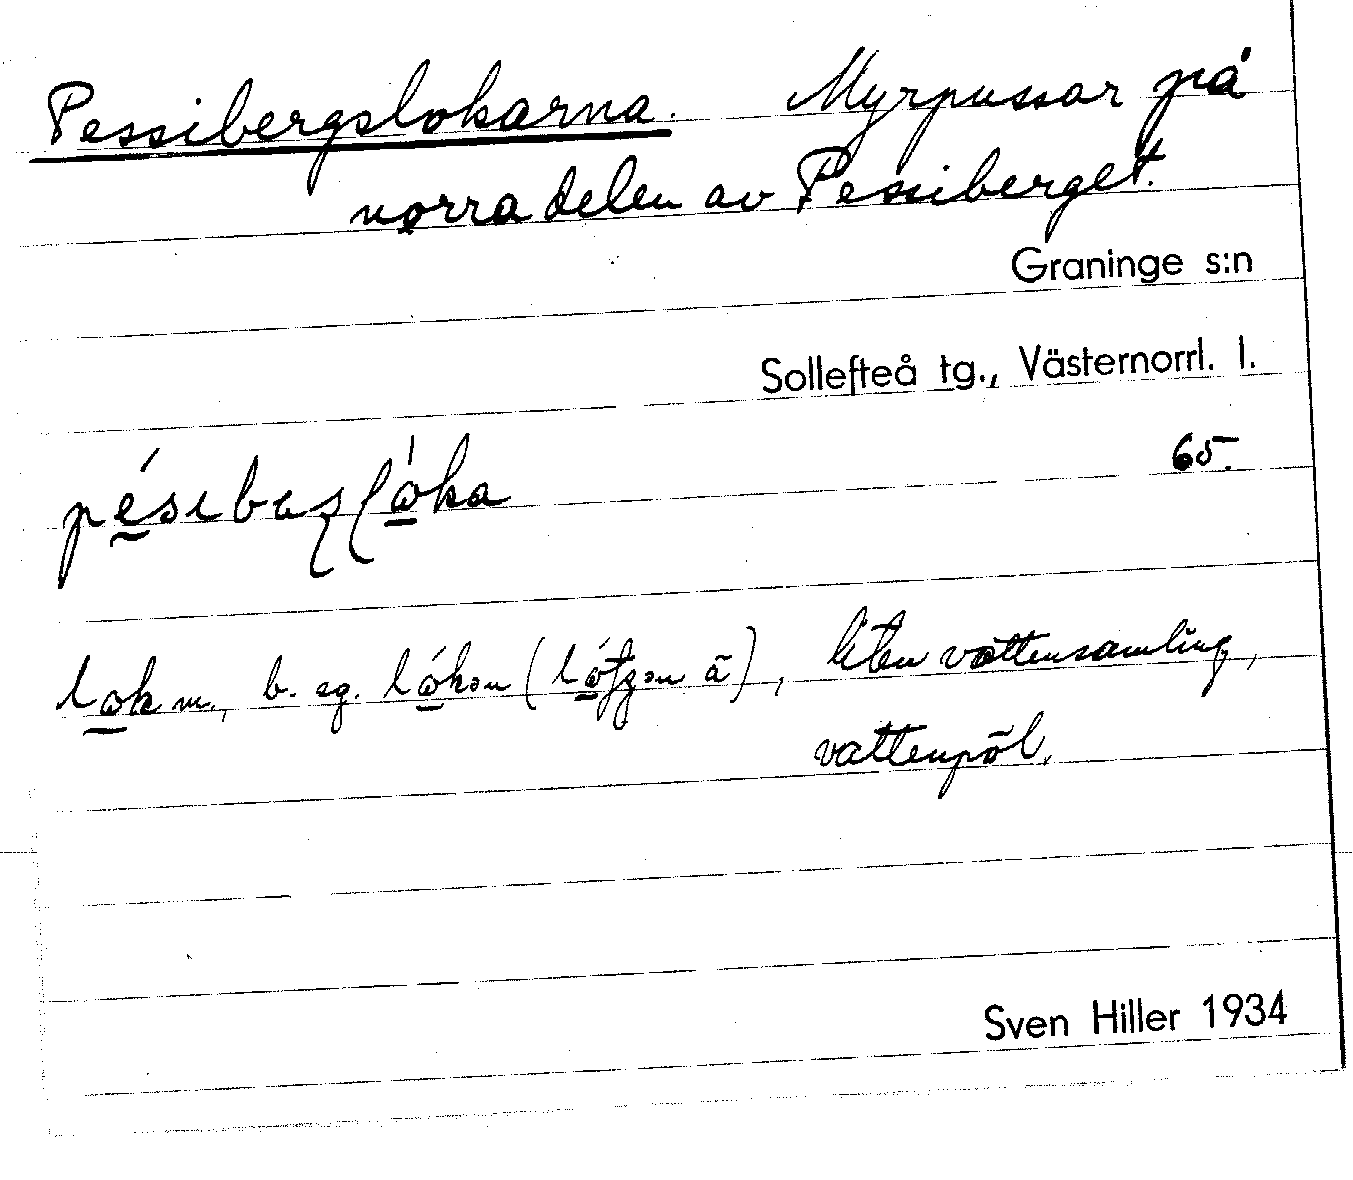 Pessibergslokarna. Myrpussar på
norra delen av Pessiberget.
Graninge s:n
Sollefteå tg., Västernorrl. l.
65.
lok m., b. sg. lókən ( ā), liten vattensamling,
vattenpöl.
Sven Hiller 1934